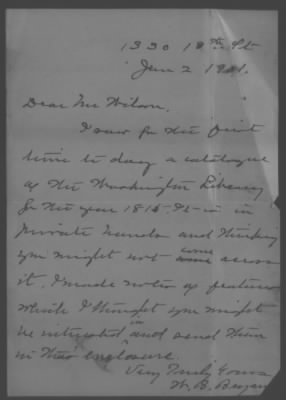 1330 18th St
Jan 2 1901.
Dear Mr Wilson.
I saw for the first
time to day a catalogue
of the Washington Library
for the year 1815. It is in
private hands and thinking
you might not come across
it. I made notes of features
which I thought you might
be interested in and send them
in this enclosure.
Very Truly Yours
W. B. Bryan